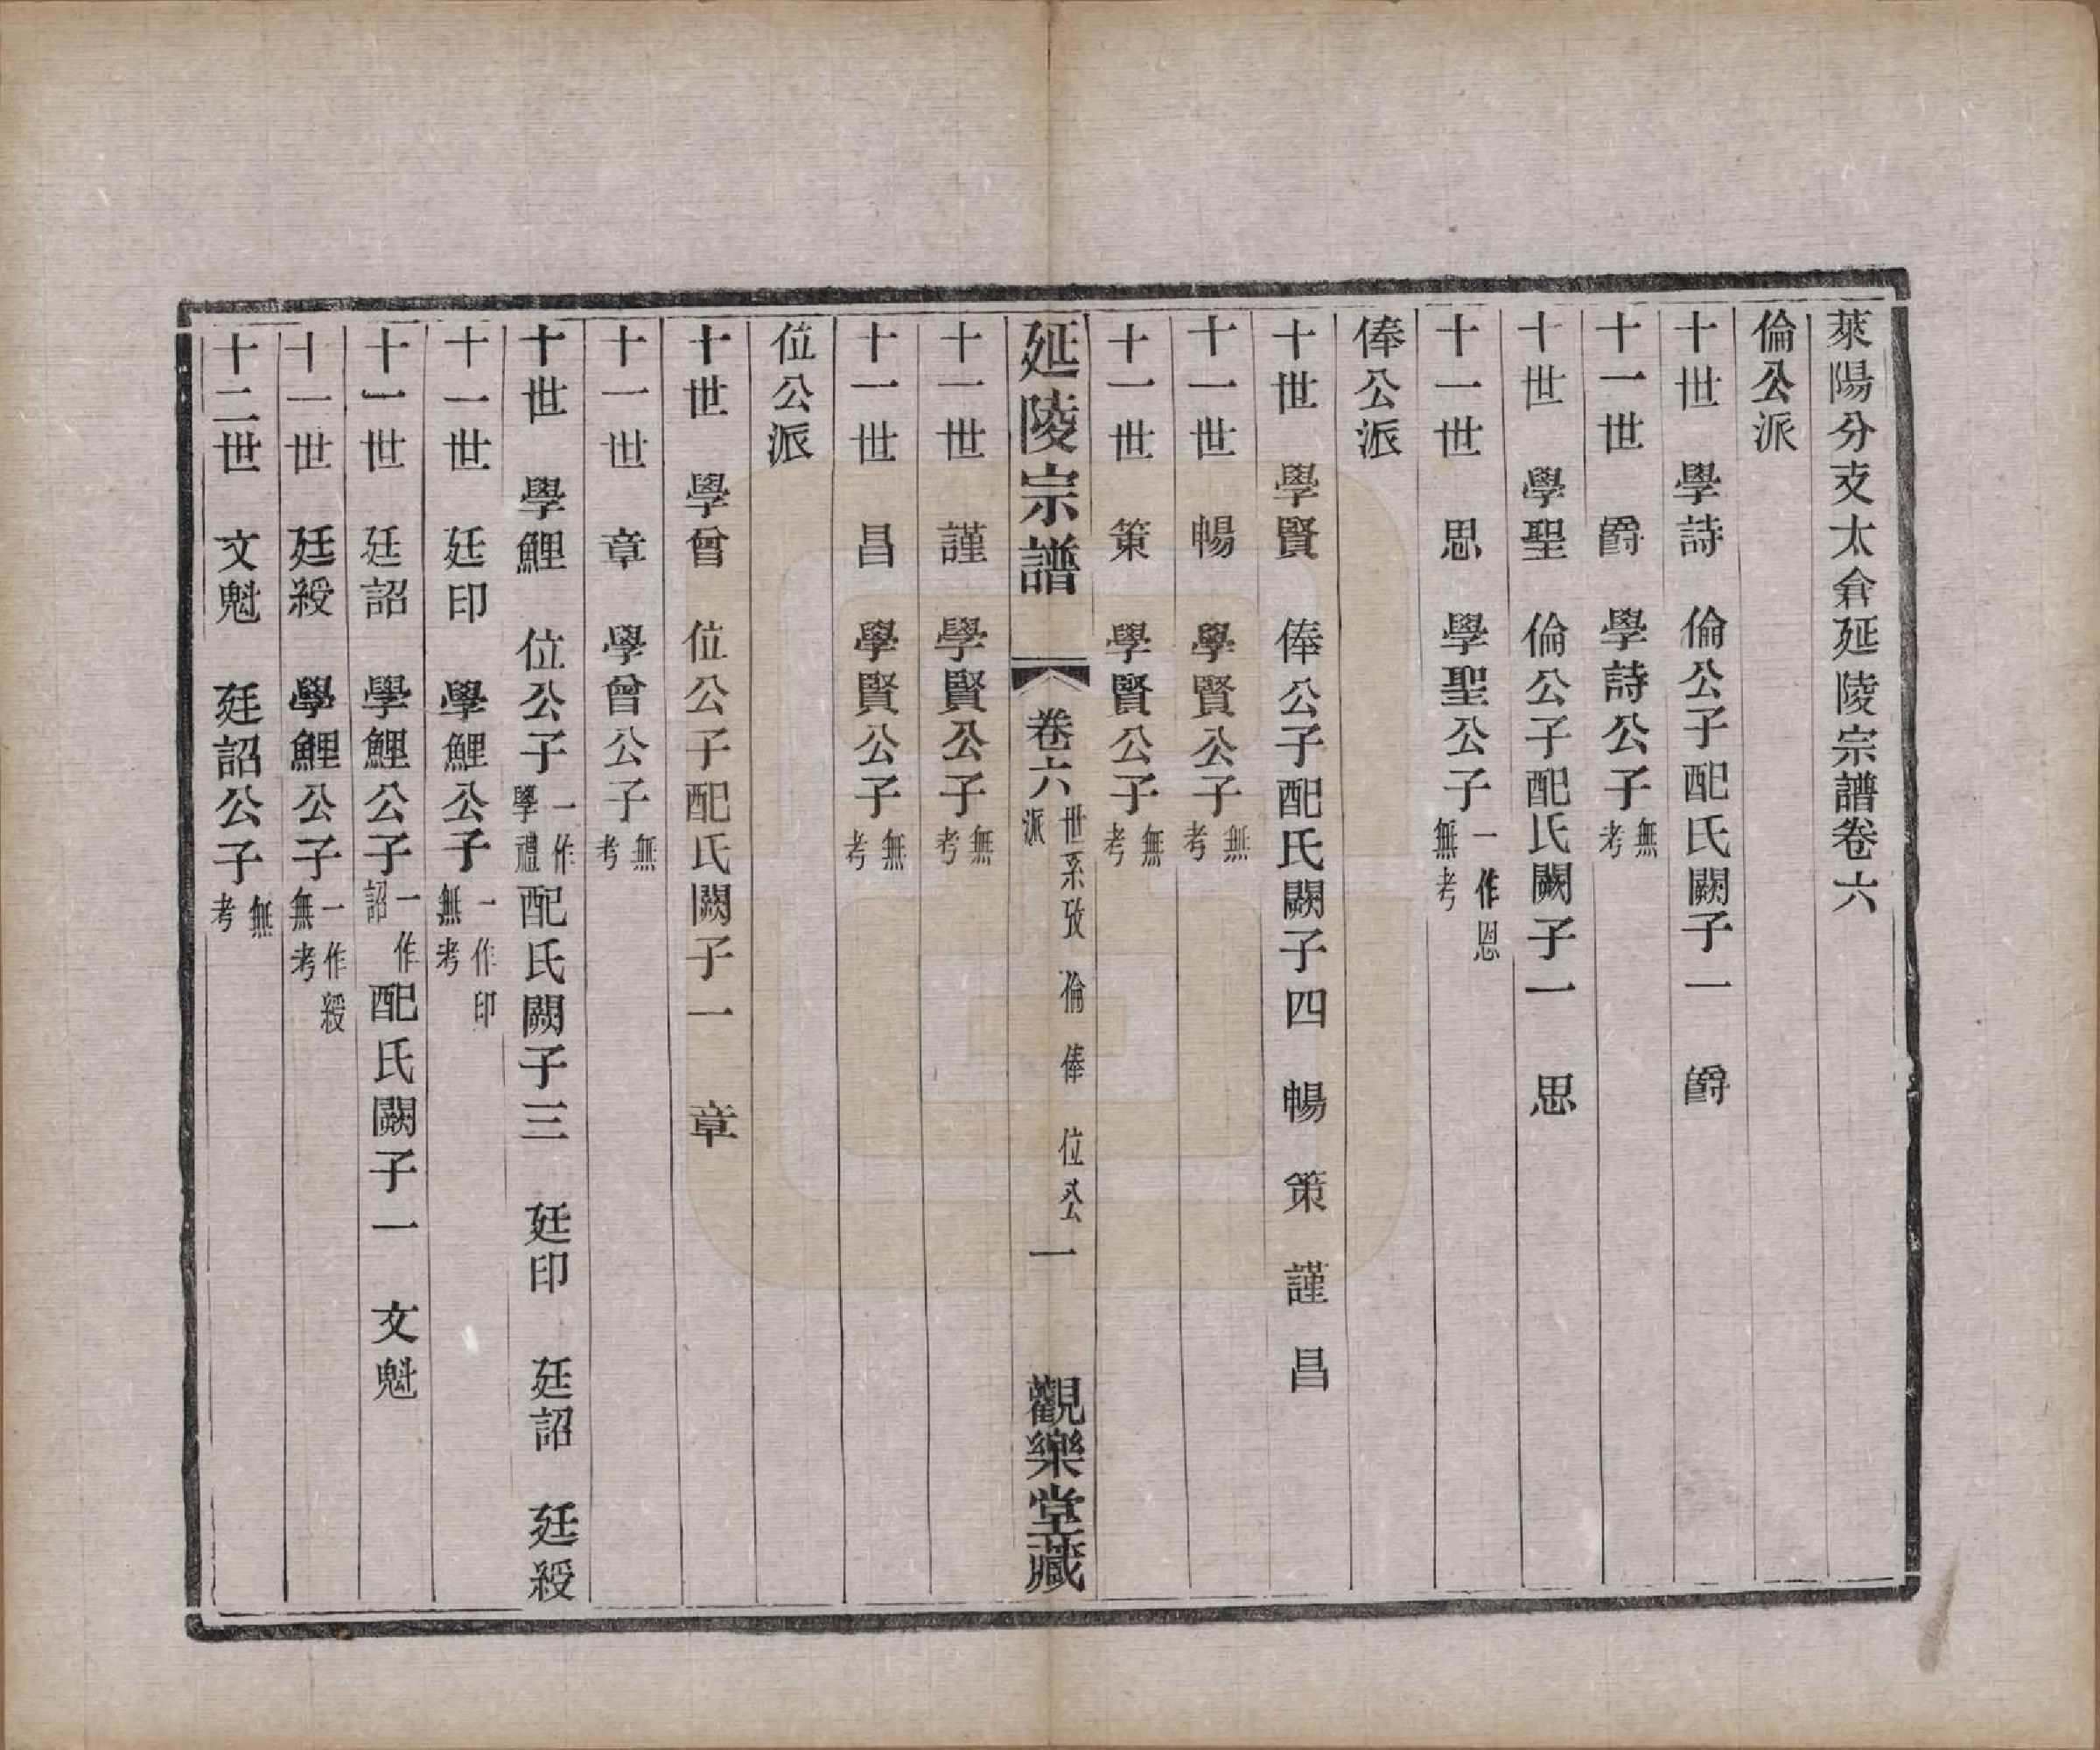 萊陽分支太倉延陵宗譜卷六
倫公派
十世　學詩　倫公子配氏闕子一　爵
十一世　爵　學詩公子無考
十世　學聖　倫公子配氏闕子一　思
十一世　思　學聖公子一作恩無考
俸公派
十世　學賢　俸公子配氏闕子四　暢　策　謹　昌
十一世　暢　學賢公子無考
十一世　策　學賢公子無考
延陵宗譜　卷六世系攷　倫　俸　位公派　一　觀樂堂藏
十一世　謹　學賢公子無考
十一世　昌　學賢公子無考
位公派
十世　學曾　位公子配氏闕子一　章
十一世　章　學曾公子無考
十世　學鯉　位公子一作學禮配氏闕子三　廷印　廷詔　廷綬
十一世　廷印　學鯉公子一作印無考
十一世　廷詔　學鯉公子一作詔配氏闕子一　文魁
十一世　廷綬　學鯉公子一作綬無考
十二世　文魁　廷詔公子無考